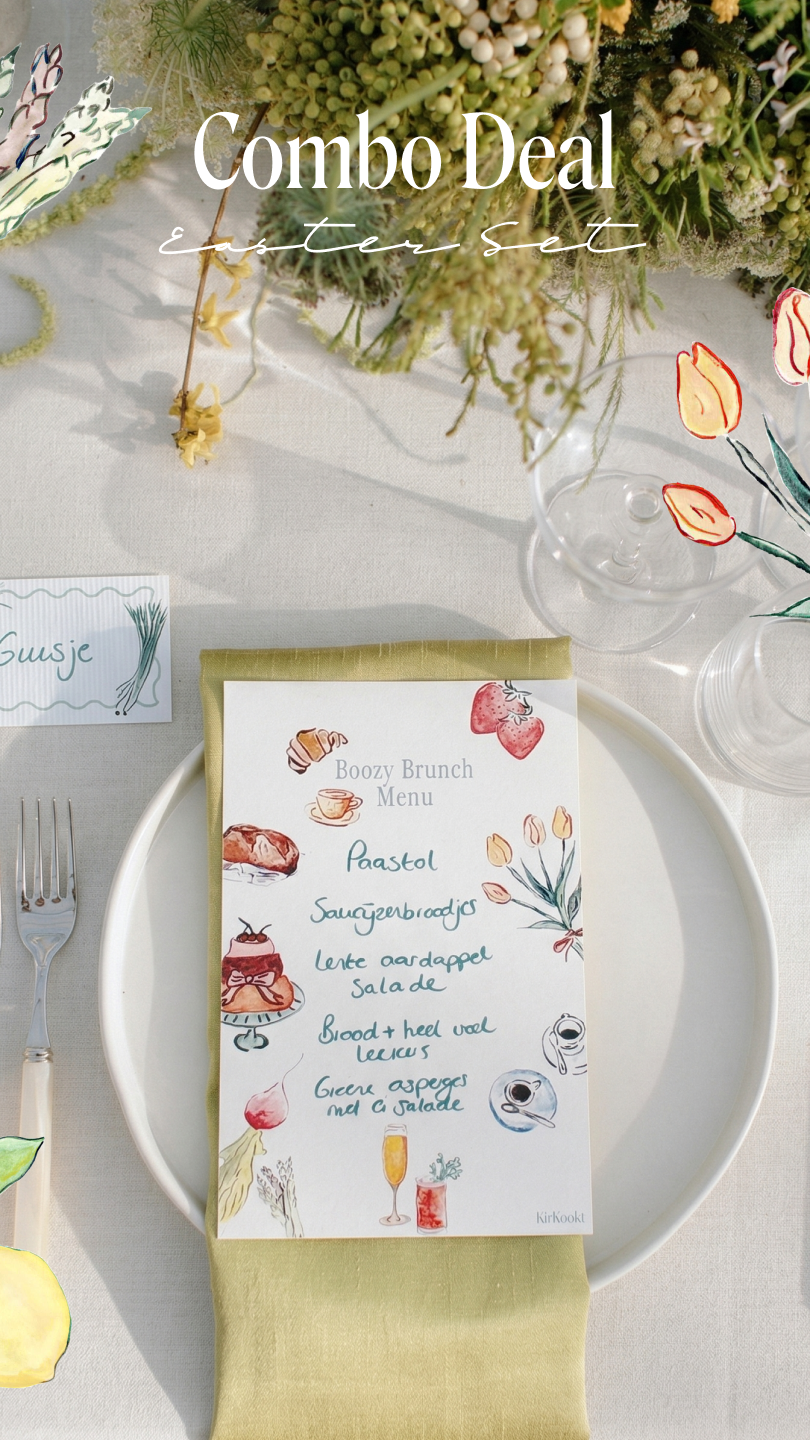 Combo Deal
Easter Set
Guusje
Boozy Brunch
Menu
Paastol
Saucijzenbroodjes
Lente aardappel
Salade
Brood + heel veel
lekkers
Groene asperges
met ei salade
KirKookt